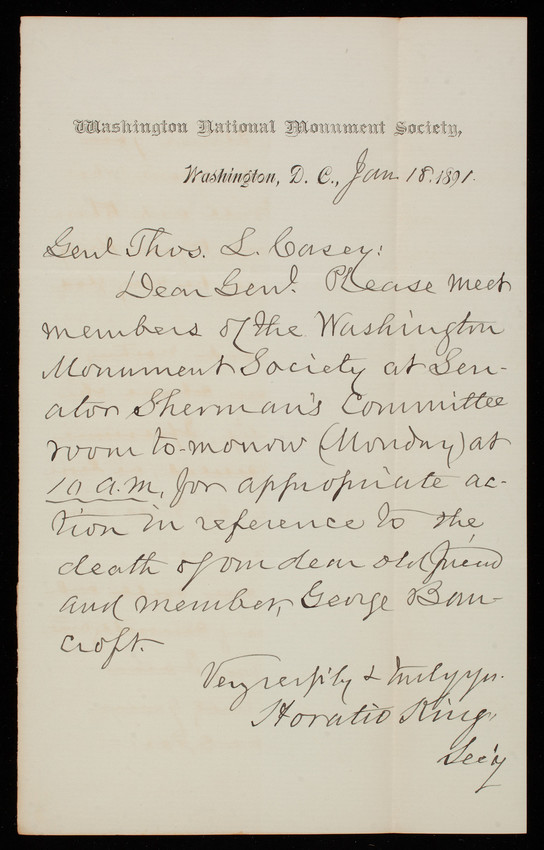 Washington National Monument Society,
Washington, D. C., Jan. 18. 1891.
Genl Thos. L. Casey:
Dear Genl. Please meet
members of the Washington
Monument Society at Sen-
ator Sherman's Committee
room to-morrow (Monday) at
10 a.m., for appropriate ac-
tion in reference to the
death of our dear old friend
and member, George Ban-
croft.
Very respfly & truly yrs.
Horatio King,
Sec'y